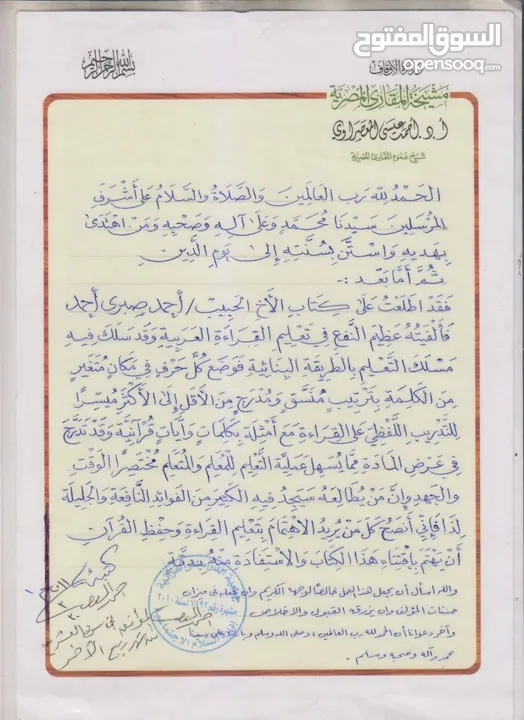 السوق المفتوح
opensooq.com
بسم الله الرحمن الرحيم
وزارة الأوقاف
مشيخة المقارئ المصرية
أ.د. أحمد عيسى المعصراوي
شيخ عموم المقارئ المصرية
الحَمْدُ للهِ رَبِ العَالَمِينَ وَالصَّلَاةُ وَالسَّلَامُ عَلَى أَشْرَفِ
المُرْسَلِينَ سَيِّدِنَا مُحَمَّدٍ وَعَلَى آلِهِ وَصَحْبِهِ وَمَنِ اهْتَدَى
بِهَدْيِهِ وَاسْتَنَّ بِسُنَّتِهِ إِلَى يَوْمِ الدِّينِ
ثُمَّ أَمَّا بَعْد :-
فَقَدْ اطَّلَعْتُ عَلَى كِتَابِ الأَخِ الحَبِيبِ / أحمد صبرى أحمد
فَأَلْفَيْتُهُ عَظِيمَ النَّفْعِ فِي تَعْلِيمِ القِرَاءَةِ العَرَبِيَّةِ وَقَدْ سَلَكَ فِيهِ
مَسْلَكَ التَّعْلِيمِ بِالطَّرِيقَةِ البِنَائِيَّةِ فَوَضَعَ كُلَّ حَرْفٍ فِي مَكَانٍ مُتَغَيِّرٍ
مِنَ الكَلِمَةِ بِتَرْتِيبٍ مُنَسَّقٍ وَمُدَرَّجٍ مِنَ الأَقَلِّ إِلَى الأَكْثَرِ مُيَسِّرًا
لِلتَّدْرِيبِ اللَّفْظِي عَلَى القِرَاءَةِ مَعَ أَمْثِلَةٍ بِكَلِمَاتٍ وَآيَاتٍ قُرْآنِيَّةٍ وَقَدْ تَدَرَّجَ
فِي عَرْضِ المَادَةِ مِمَّا يُسَهِلُ عَمَلِيَّةَ التَّعْلِيمِ لِلمُعَلِّمِ وَالمُتَعَلِّمِ مُخْتَصِرًا الوَقْتَ
وَالجُهْدَ وَإِنَّ مَنْ يُطَالِعُهُ سَيَجِدُ فِيهِ الكَثِيرَ مِنَ الفَوَائِدِ النَّافِعَةِ وَالجَلِيلَةِ
لِذَا فَإِنِّي أَنْصَحُ كُلَّ مَنْ يُرِيدُ الاهْتِمَامَ بِتَعْلِيمِ القِرَاءَةِ وَحِفْظِ القُرْآنِ
أَنْ يَهْتَمَ بِاقْتِنَاءِ هَذَا الكِتَابِ وَالاسْتِفَادَةِ مِنْهُ بِدِقَّةٍ
والله أسأل أن يجعل هذا العمل خالصًا لوجهه الكريم وأن يجعله في ميزان
حسنات المؤلف وأن يرزقه القبول والإخلاص
وآخر دعوانا أن الحمد لله رب العالمين، وصلى الله وسلم وبارك على سيدنا
محمد وآله وصحبه وسلم .